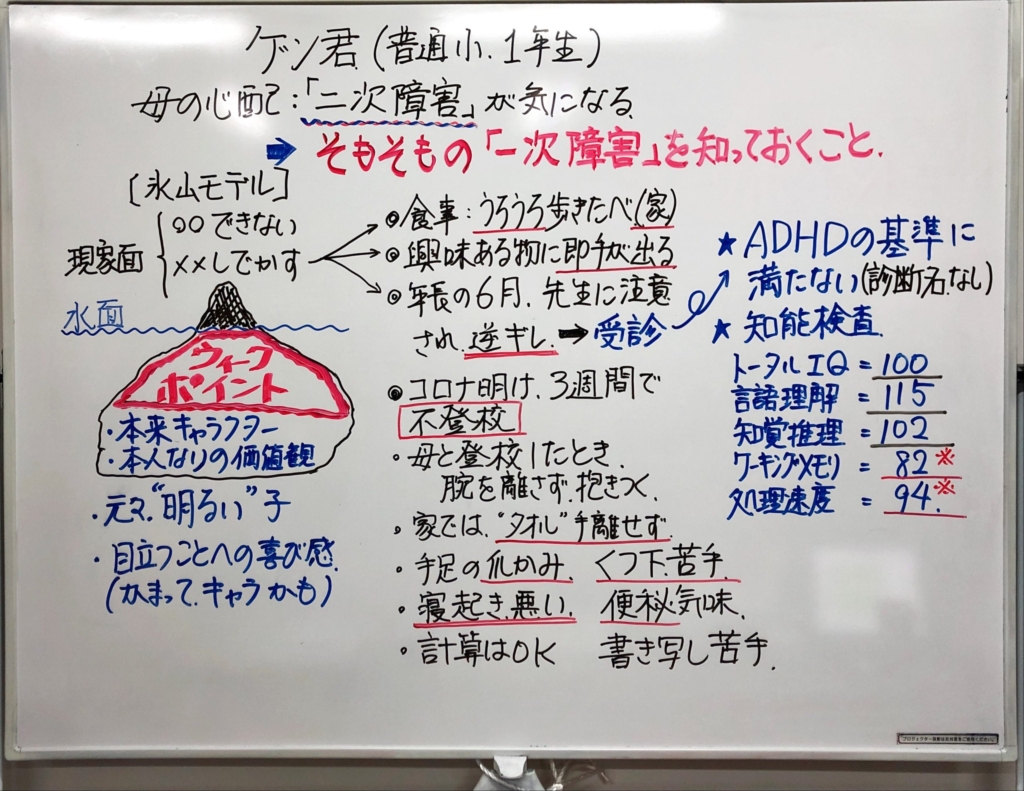 ゲン君(普通小.1年生)
母の心配:「二次障害」が気になる
➡ そもそもの「一次障害」を知っておくこと.
[氷山モデル]
現象面
○○できない
××しでかす
水面
ウィーク
ポイント
・本来キャラクター
・本人なりの価値観
・元々"明るい"子
・目立つことへの喜び感
(かまって.キャラかも)
◎食事:うろうろ歩きたべ(家)
◎興味ある物に即手が出る
◎年長の6月.先生に注意
され.逆ギレ.➡受診
◎コロナ明け.3週間で
不登校
・母と登校したとき.
腕を離さず.抱きつく.
・家では"タオル"手離せず.
・手足の爪かみ. くつ下.苦手.
・寝起き.悪い. 便秘気味.
・計算はOK 書き写し苦手.
★ADHDの基準に
満たない(診断名.なし)
★知能検査.
トータルIQ=100
言語理解=115
知覚推理=102
ワーキングメモリ=82※
処理速度=94.※